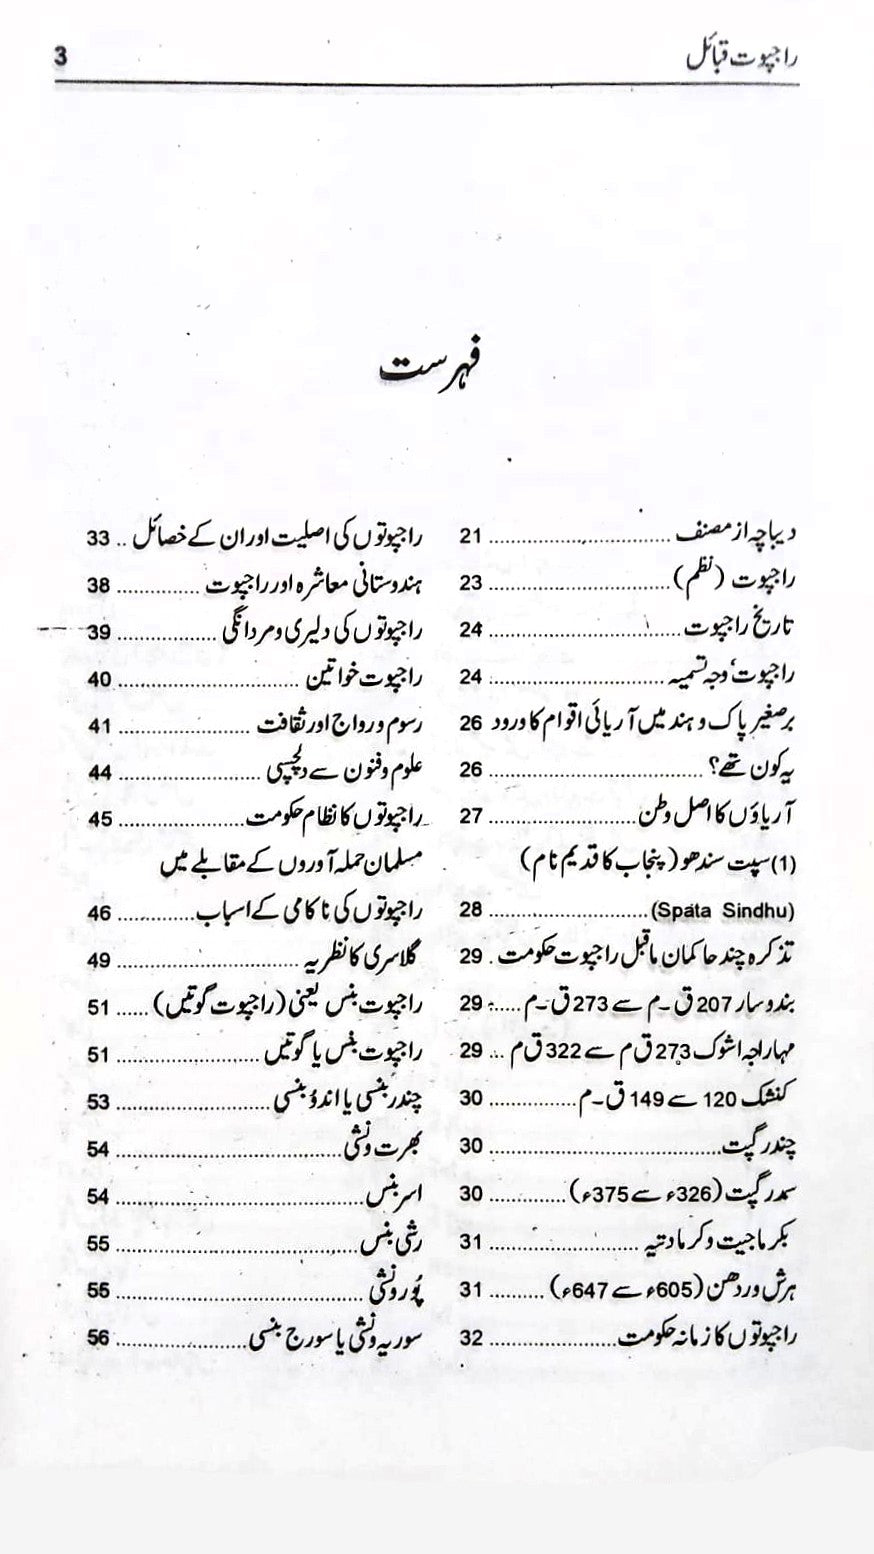 راجپوت قبائل 3
فہرست
دیباچہ از مصنف 21
راجپوت (نظم) 23
تاریخ راجپوت 24
راجپوت‘ وجہ تسمیہ 24
برصغیر پاک و ہند میں آریائی اقوام کا ورود 26
یہ کون تھے؟ 26
آریاؤں کا اصل وطن 27
(1) سپت سندھو (پنجاب کا قدیم نام)
(Spata Sindhu) 28
تذکرہ چند حاکمان ماقبل راجپوت حکومت . 29
بندوسار 207 ق ۔م سے 273 ق ۔م 29
مہاراجہ اشوک 273 ق م سے 322 ق م ... 29
کنشک 120 سے 149 ق ۔م 30
چندر گپت 30
سمدر گپت (326ء سے 375ء) 30
بکرماجیت وکرمادتیہ 31
ہرش وردھن (605ء سے 647ء) 31
راجپوتوں کا زمانہ حکومت 32
راجپوتوں کی اصلیت اور ان کے خصائل .. 33
ہندوستانی معاشرہ اور راجپوت 38
راجپوتوں کی دلیری و مردانگی 39
راجپوت خواتین 40
رسوم و رواج اور ثقافت 41
علوم و فنون سے دلچسپی 44
راجپوتوں کا نظام حکومت 45
مسلمان حملہ آوروں کے مقابلے میں
راجپوتوں کی ناکامی کے اسباب 46
گلاسری کا نظریہ 49
راجپوت بنس یعنی (راجپوت گوتیں) 51
راجپوت بنس یا گوتیں 51
چندر بنسی یا اندؤ بنسی 53
بھرت ونشی 54
اسر بنس 54
رشی بنس 55
پُورونشی 55
سوریہ ونشی یا سورج بنسی 56